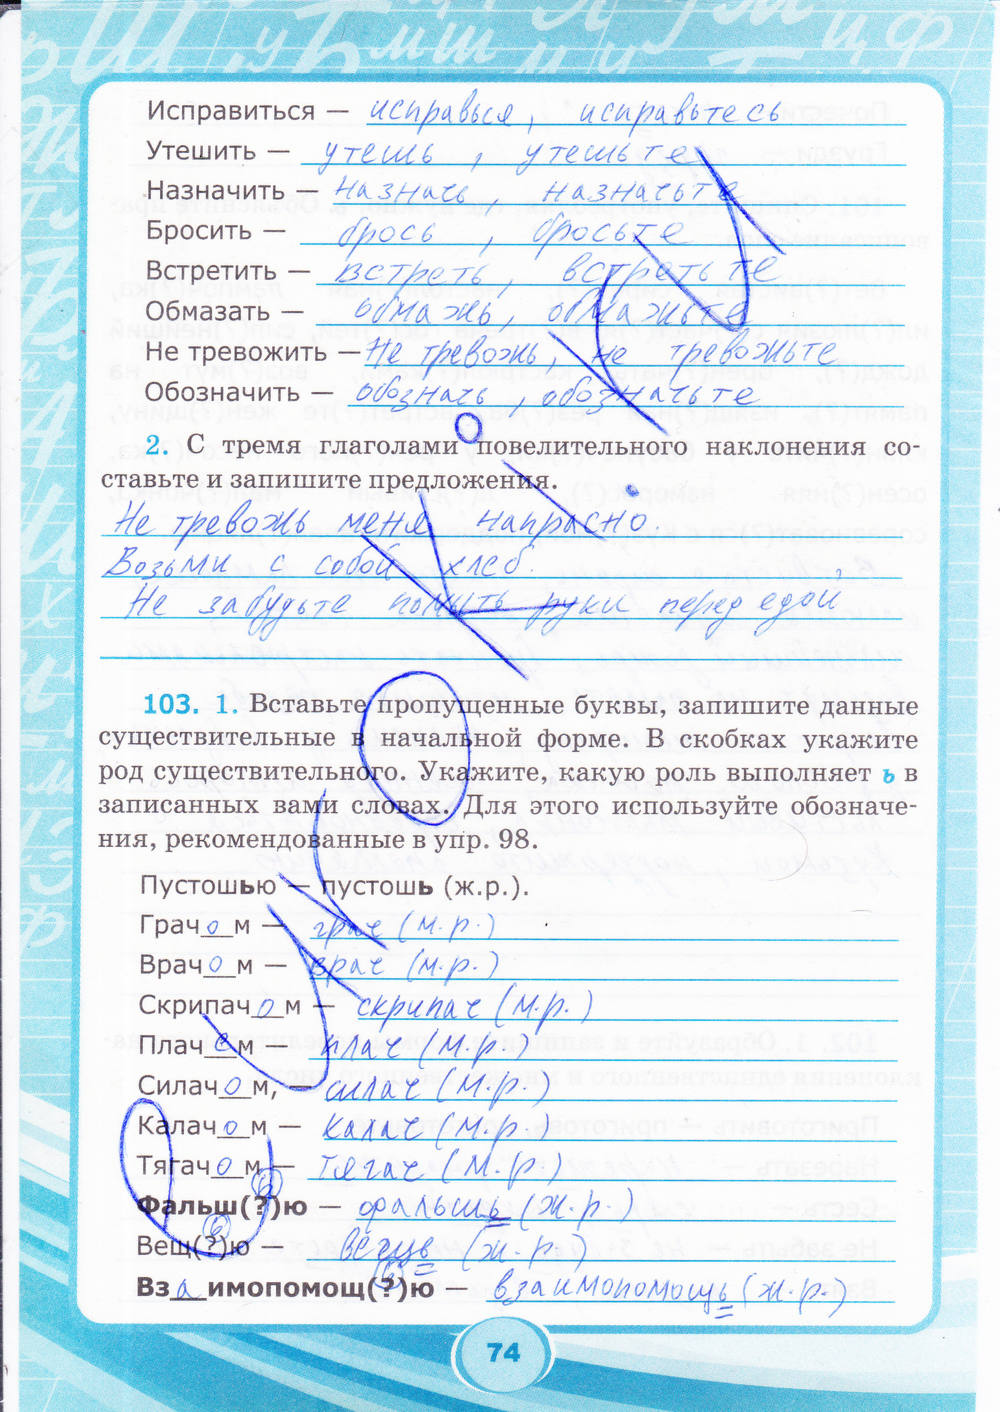 Исправиться — исправься, исправьтесь
Утешить — утешь, утешьте
Назначить — назначь, назначьте
Бросить — брось, бросьте
Встретить — встреть, встретьте
Обмазать — обмажь, обмажьте
Не тревожить — Не тревожь, не тревожьте
Обозначить — обозначь, обозначьте
2. С тремя глаголами повелительного наклонения со-
ставьте и запишите предложения.
Не тревожь меня напрасно.
Возьми с собой хлеб.
Не забудьте помыть руки перед едой
103. 1. Вставьте пропущенные буквы, запишите данные
существительные в начальной форме. В скобках укажите
род существительного. Укажите, какую роль выполняет ь в
записанных вами словах. Для этого используйте обозначе-
ния, рекомендованные в упр. 98.
Пустошью — пустошь (ж.р.).
Грачом — грач (м.р.)
Врачом — врач (м.р.)
Скрипачом — скрипач (м.р.)
Плачем — плач (м.р.)
Силачом, — силач (м.р.)
Калачом — калач (м.р.)
Тягачом — тягач (м.р.)
Фальш(?)ю — фальшь (ж.р.)
Вещ(?)ю — вещь (ж.р.)
Взаимопомощ(?)ю — взаимопомощь (ж.р.)
74